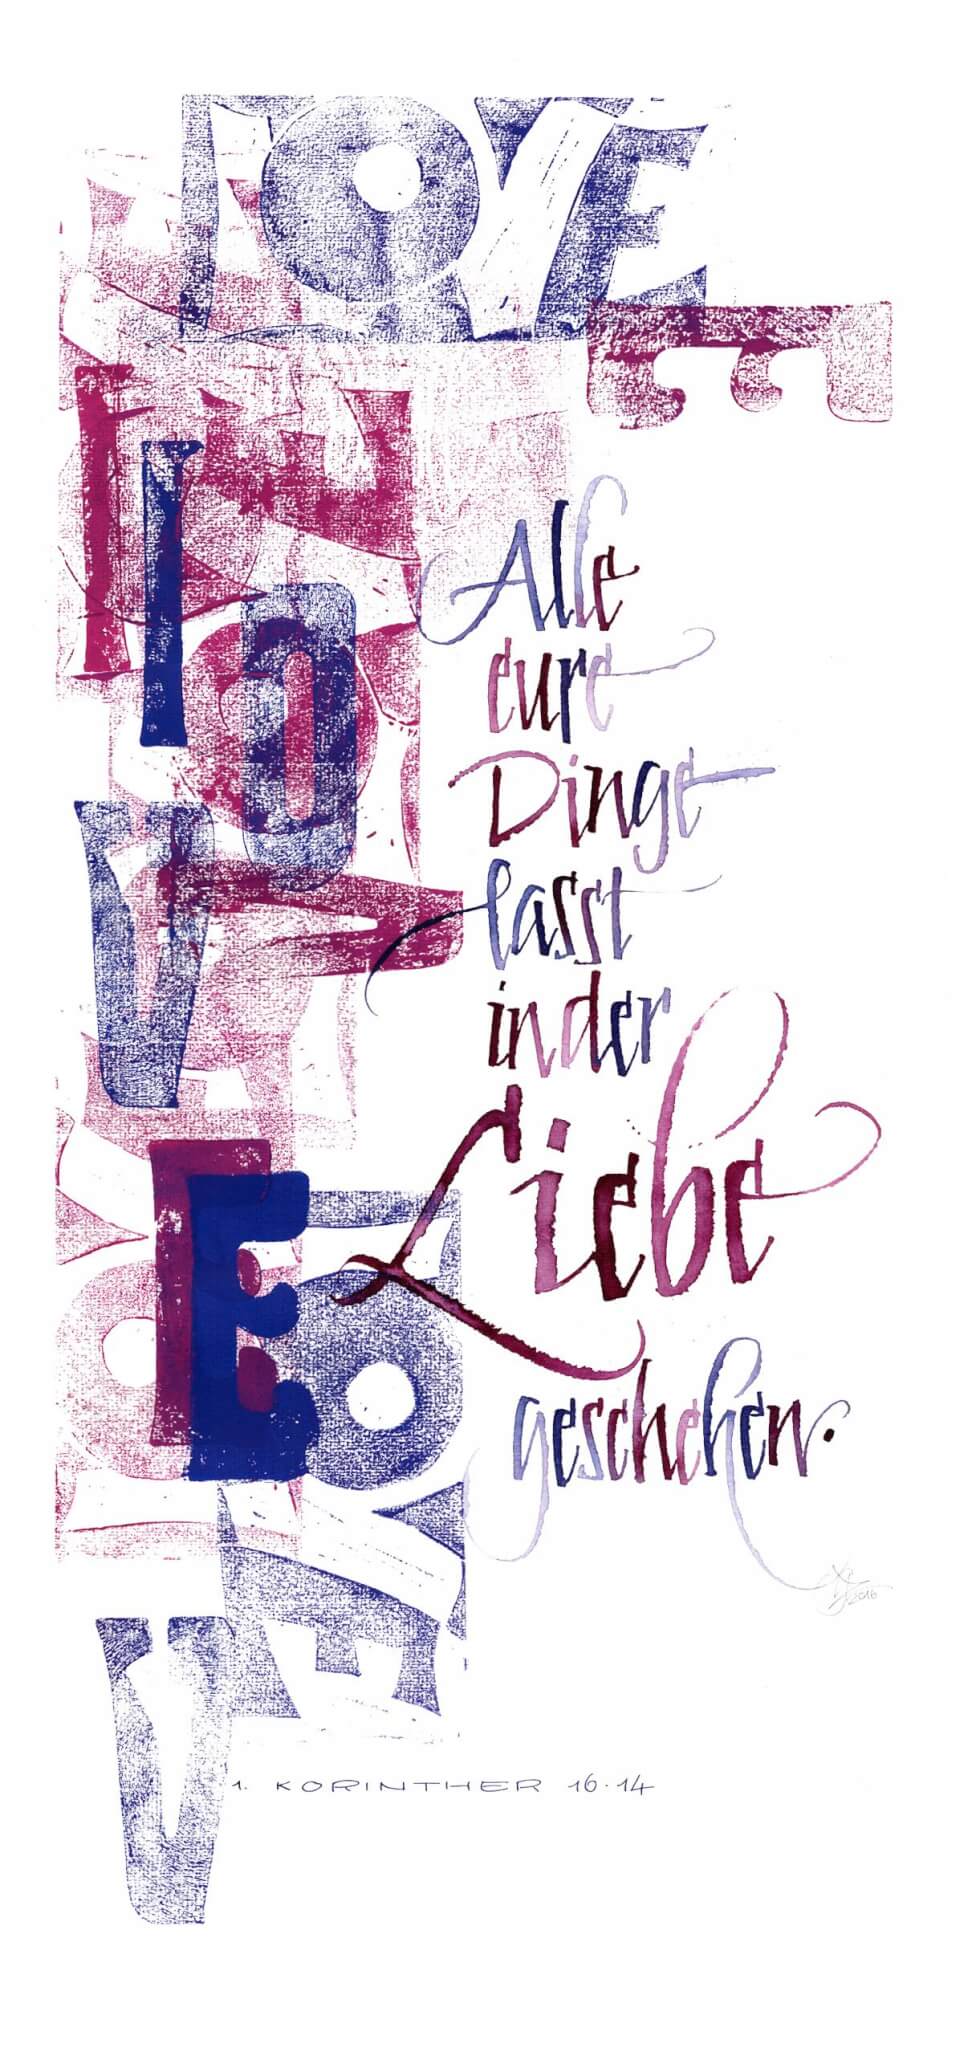 LOVE
E
L
O
V
E
V
Alle
eure
Dinge
lasst
in der
Liebe
geschehen.
2016
1. KORINTHER 16.14